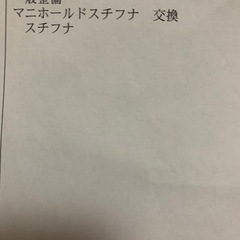 般整備
マニホールドスチフナ　交換
スチフナ